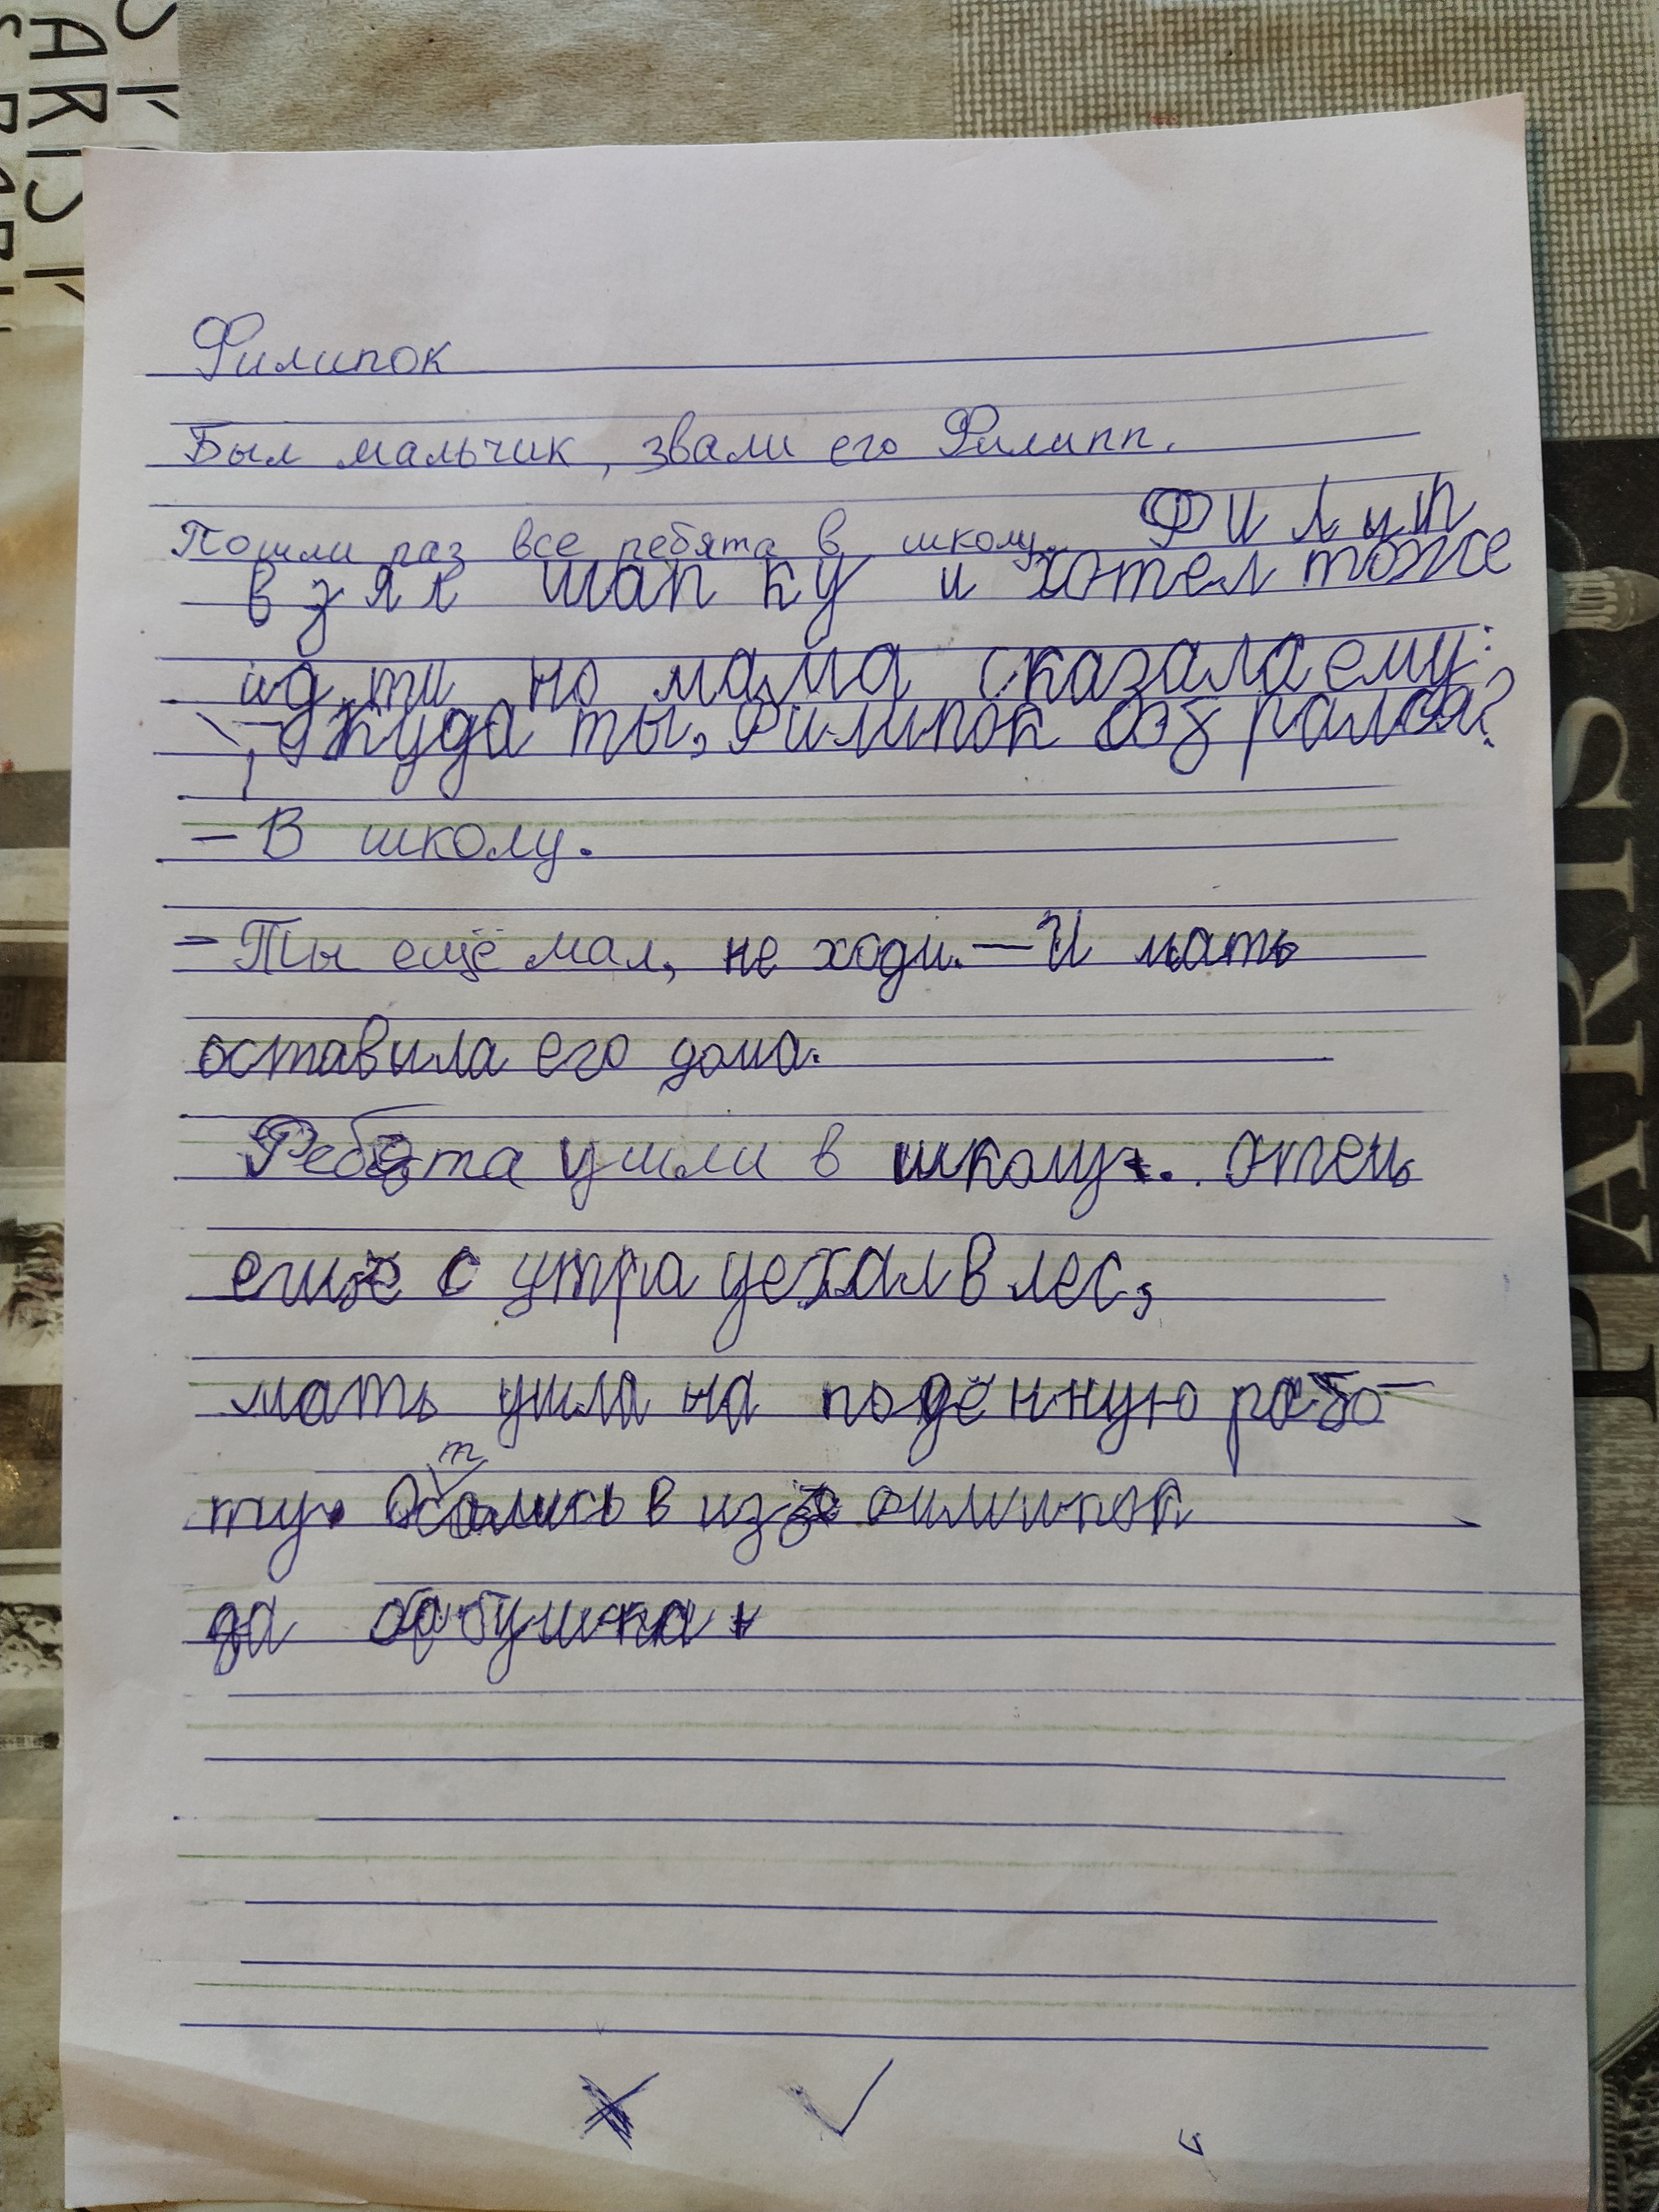 Филипок
Был мальчик, звали его Филипп.
Пошли раз все ребята в школу. Филип
взял шапку и хотел тоже
идти но мама сказала ему:
куда ты, Филипок собрался?
– В школу.
– Ты ещё мал, не ходи. – И мать
оставила его дома.
Ребята ушли в школу. Отец
ещё с утра уехал в лес,
мать ушла на подённую рабо-
ту. Остались в избе Филипок
да бабушка.
PARIS
PARIS